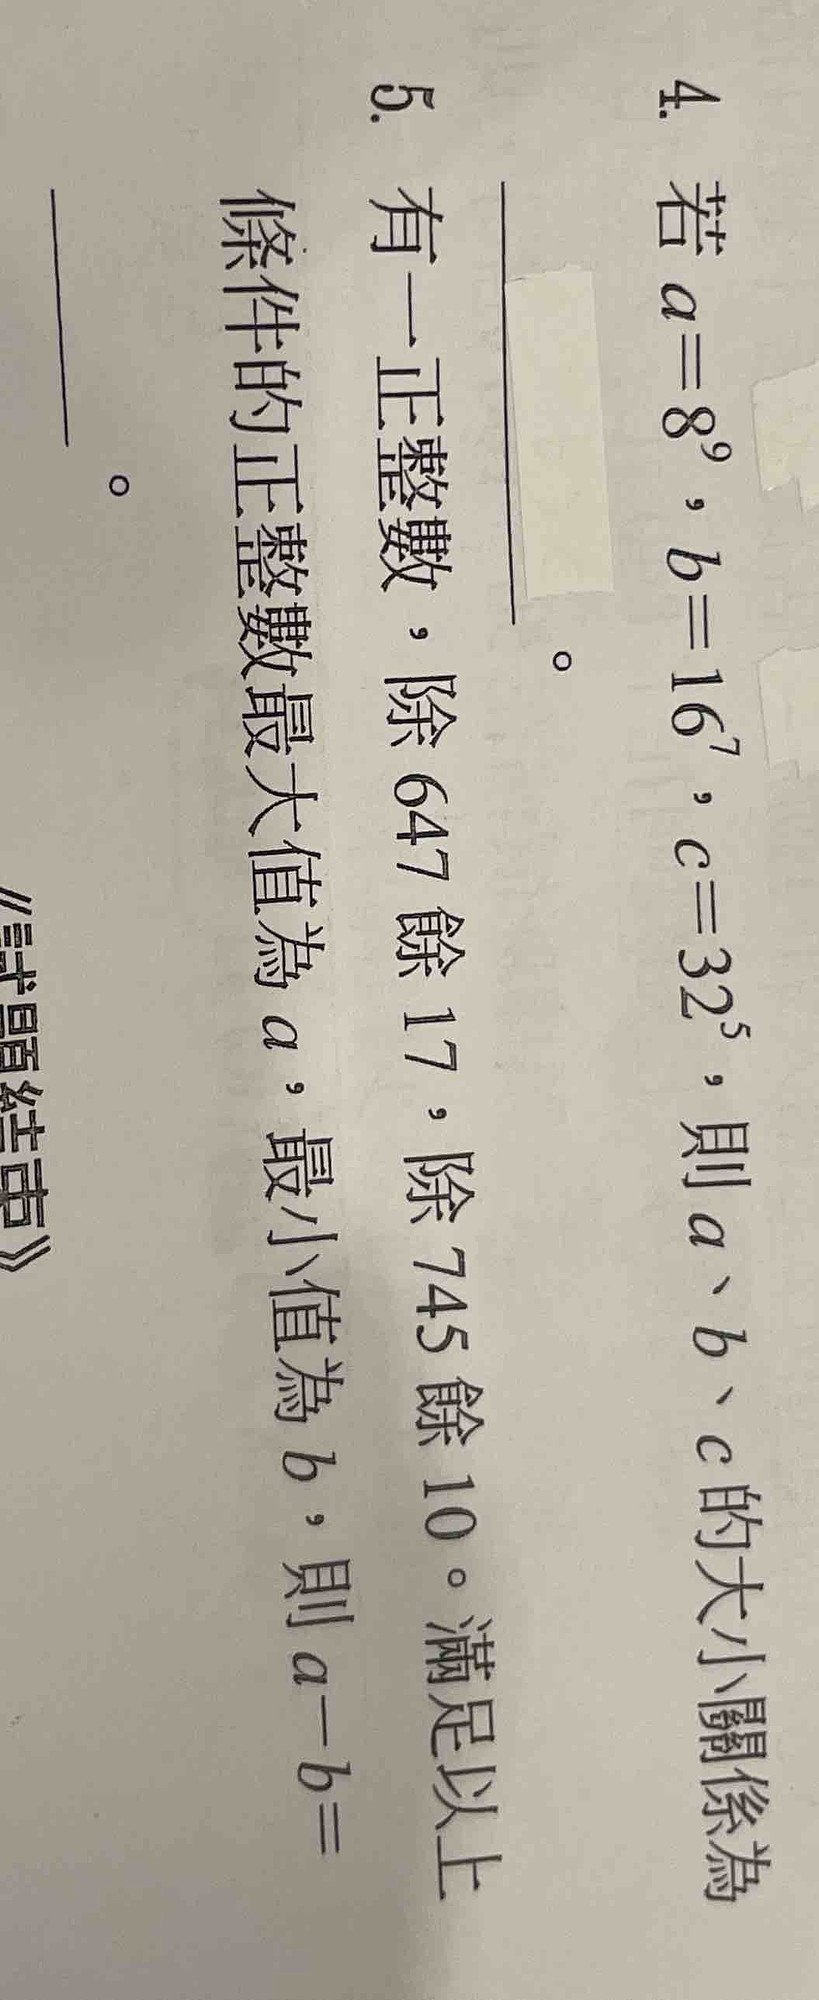 4. 若 a=8⁹，b=16⁷，c=32⁵，則 a、b、c 的大小關係為
＿＿＿＿＿＿。
5. 有一正整數，除 647 餘 17，除 745 餘 10。滿足以上
條件的正整數最大值為 a，最小值為 b，則 a－b=
＿＿＿＿。
《試題結束》